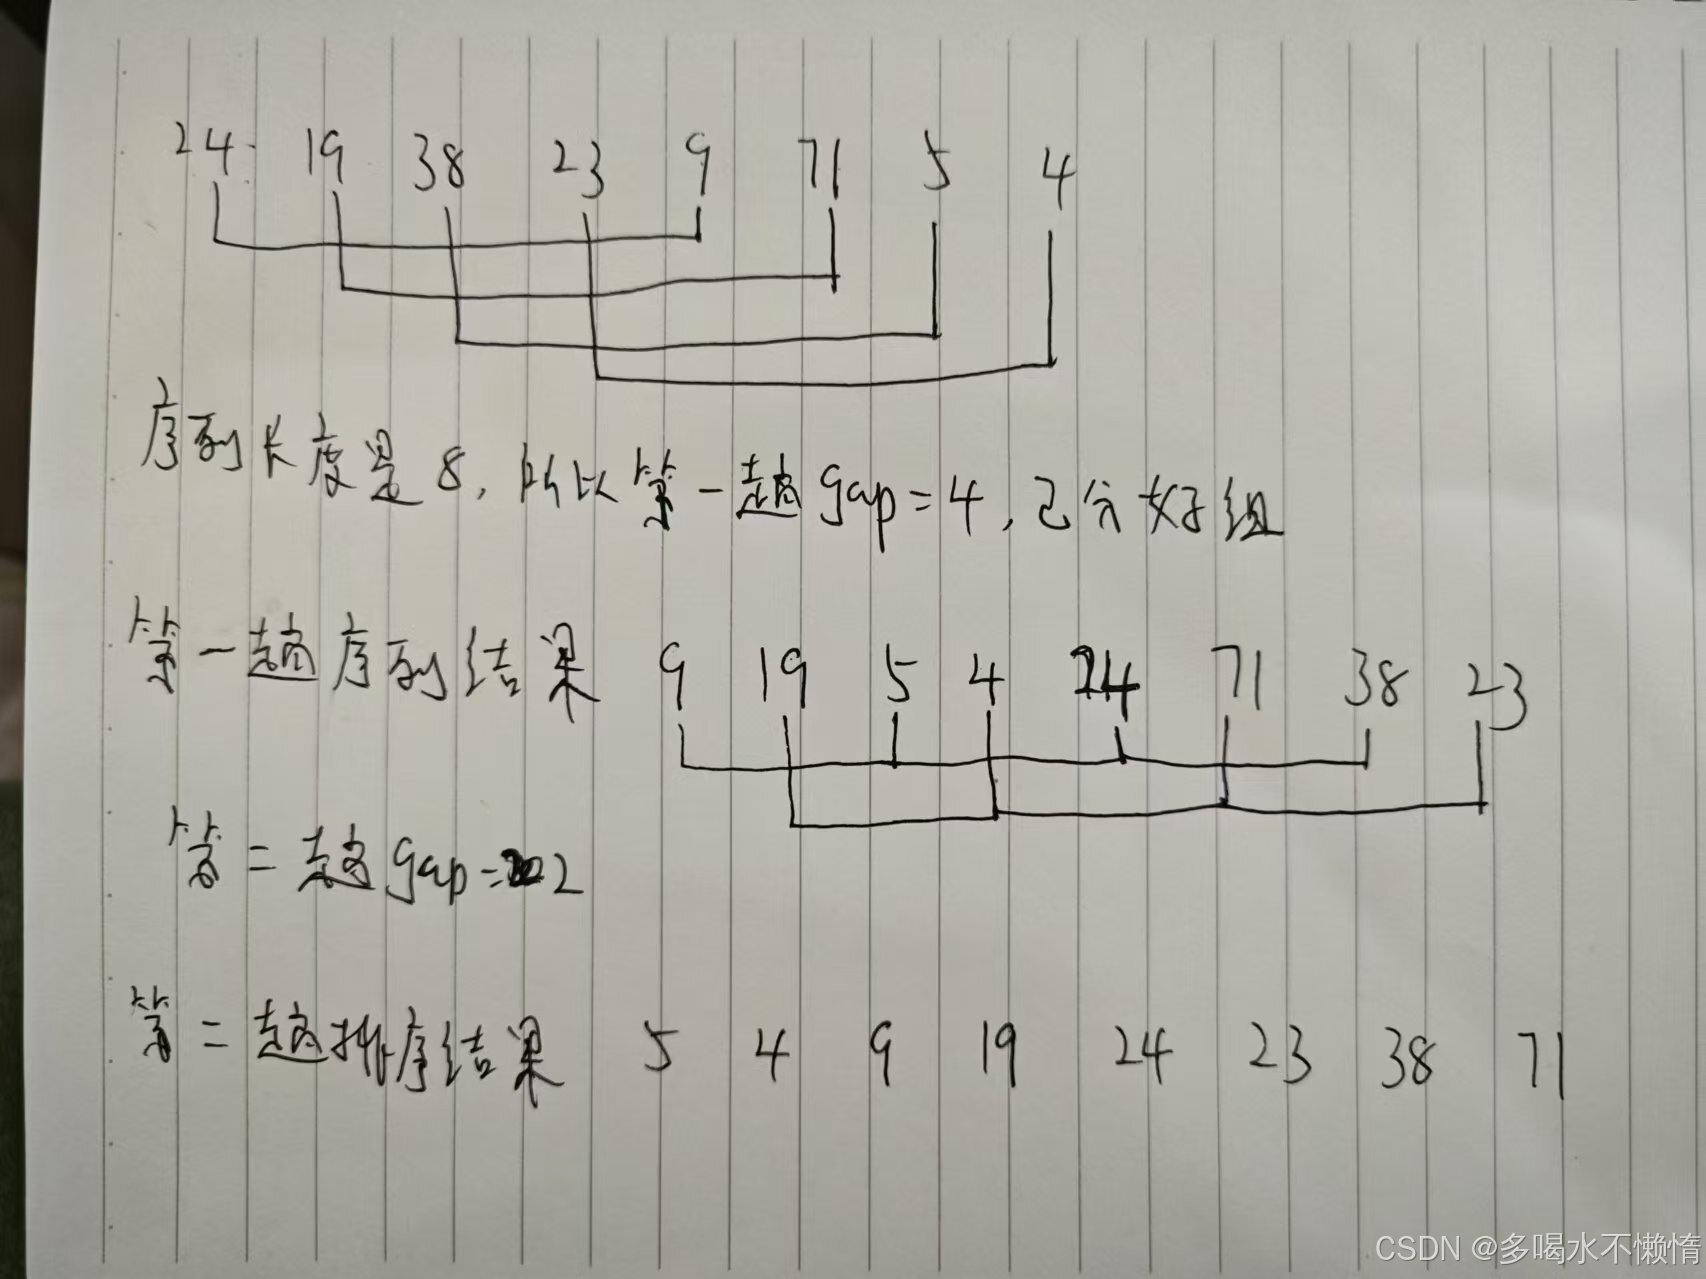 24 19 38 23 9 71 5 4
序列长度是8,所以第一趟gap=4,已分好组
第一趟序列结果 9 19 5 4 24 71 38 23
第二趟gap=2
第二趟排序结果 5 4 9 19 24 23 38 71
CSDN @多喝水不懒惰